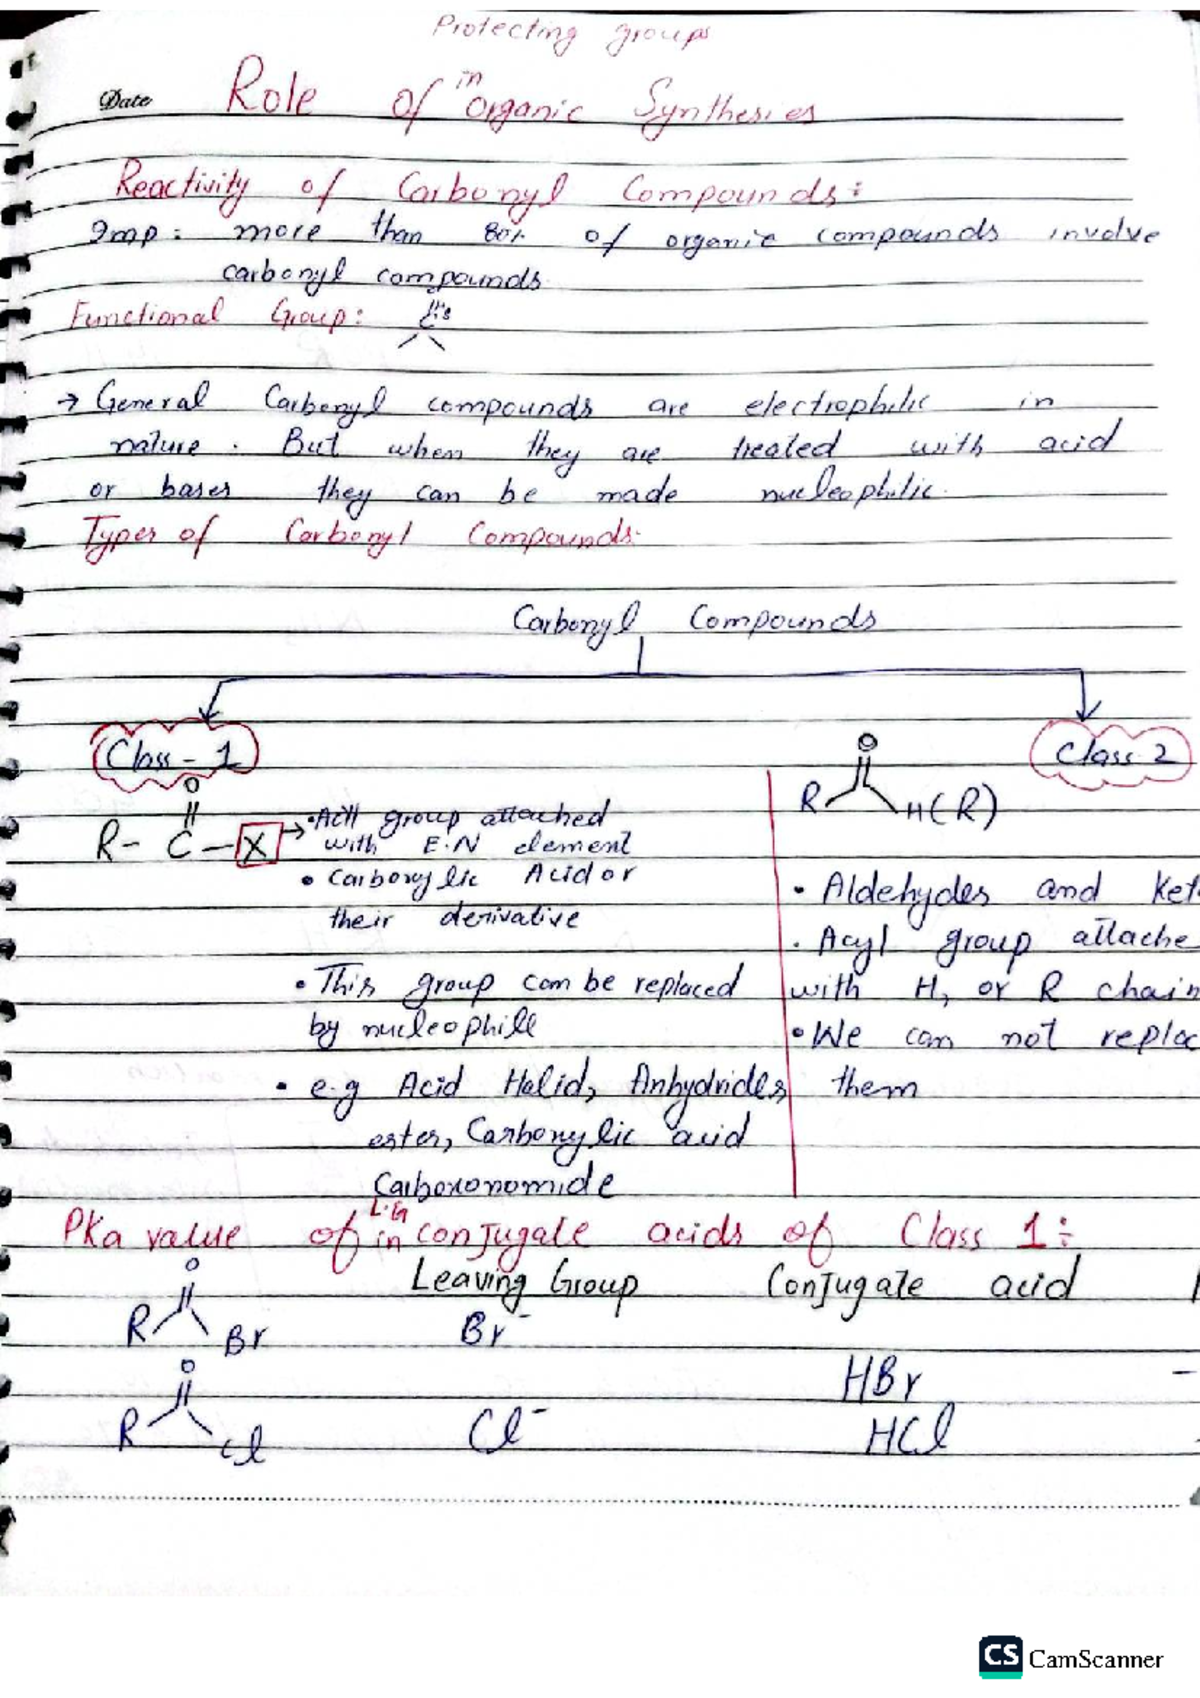 Protecting groups
Date Role of in organic Synthesies
Reactivity of Carbonyl Compounds:
Imp: more than 80% of organic compounds involve
carbonyl compounds.
Functional Group:
→ General Carbonyl compounds are electrophilic in
nature. But when they are treated with acid
or bases they can be made nucleophilic.
Types of Carbonyl Compounds:
Carbonyl Compounds
Class - 1
Class 2
O
R - C - X
O
R H(R)
→ • group attached
with E.N element
• Carboxylic Acid or
their derivative
• This group can be replaced
by nucleophile
• e.g Acid Halid, Anhydrides,
ester, Carbonylic acid
• Aldehydes and Ket
• Acyl group attache
with H, or R chain
• We can not replac
them
PKa value of L.G in conjugate acids of Class 1:
Leaving Group Conjugate acid
O
R Br Br⁻ HBr -
O
R Cl Cl⁻ HCl
CS CamScanner